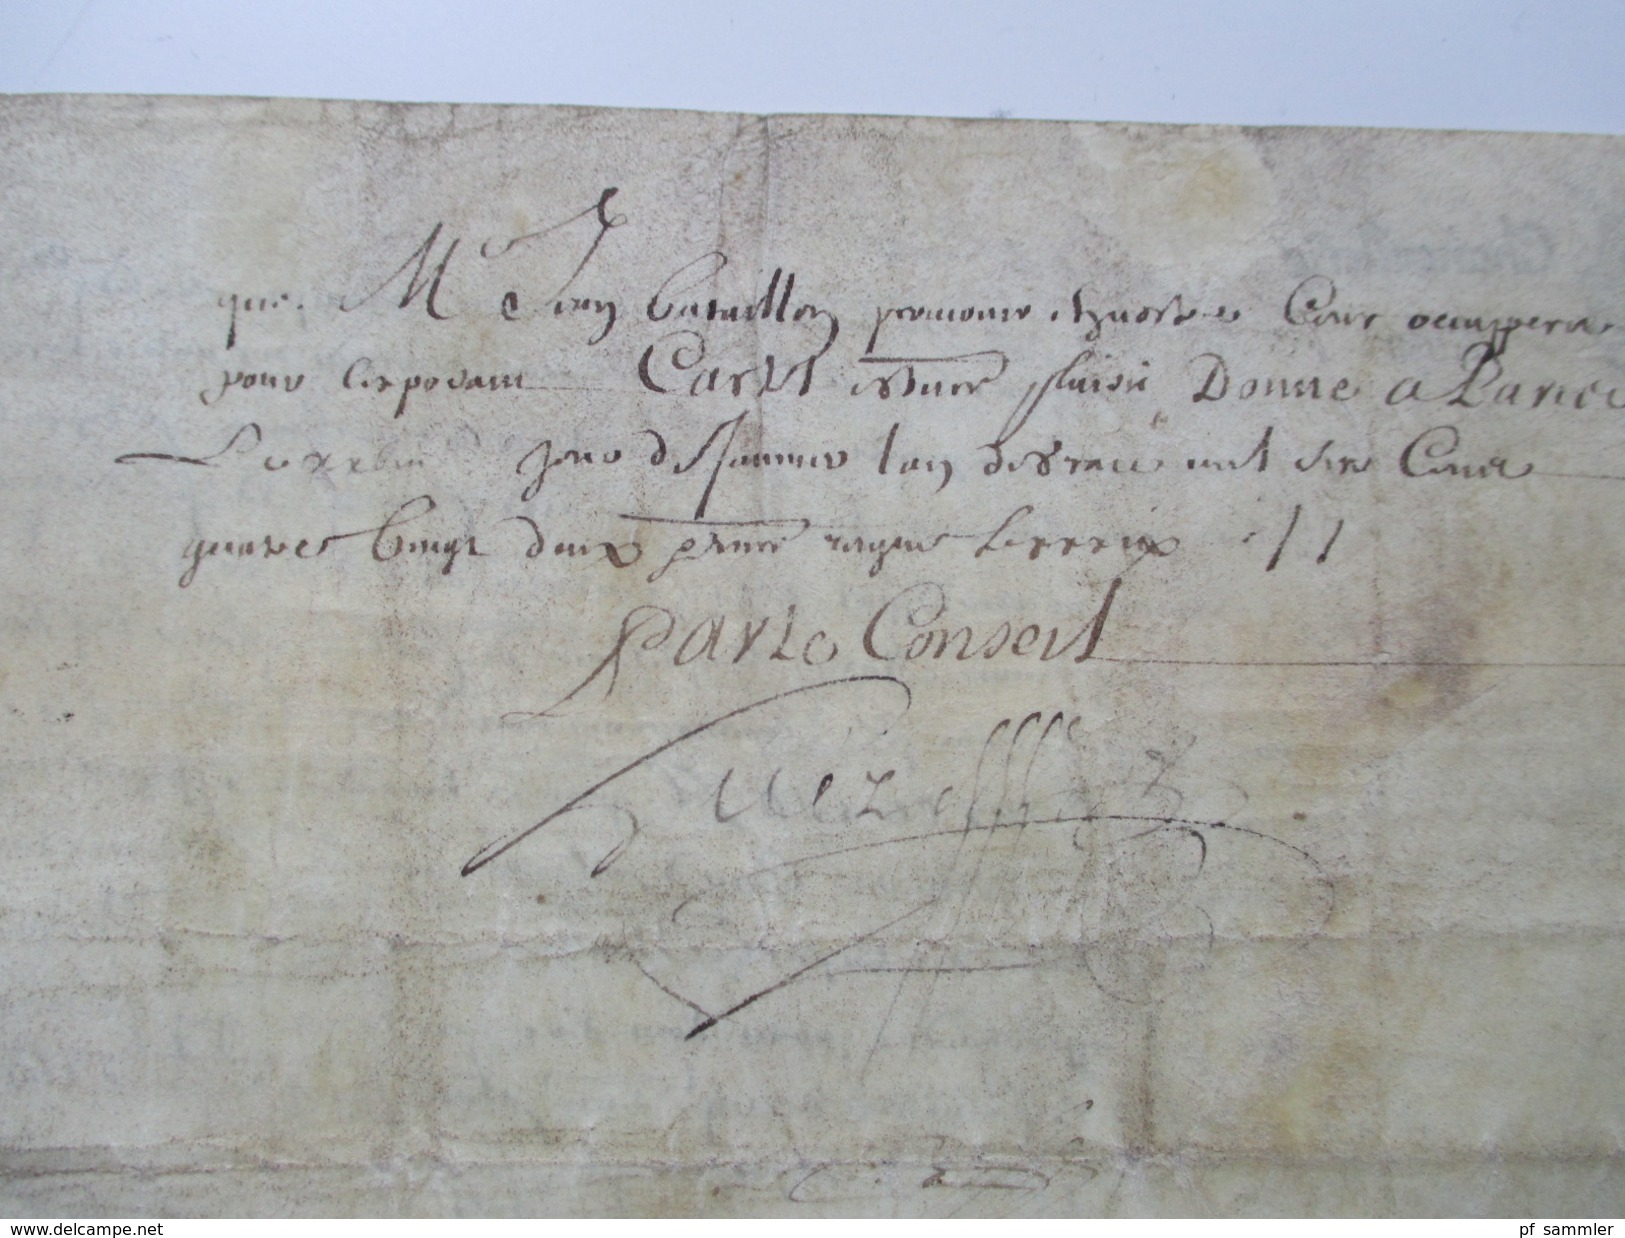 que Mr Jean bataillon procureur Cour occuppera
pour lexposant Car tel est nre plaisir Donne a Paris
jour de Janvier lan de grace mil six Cens
quatre vingt deux nre regne
Par le Conseil
www.delcampe.net
pf sammler